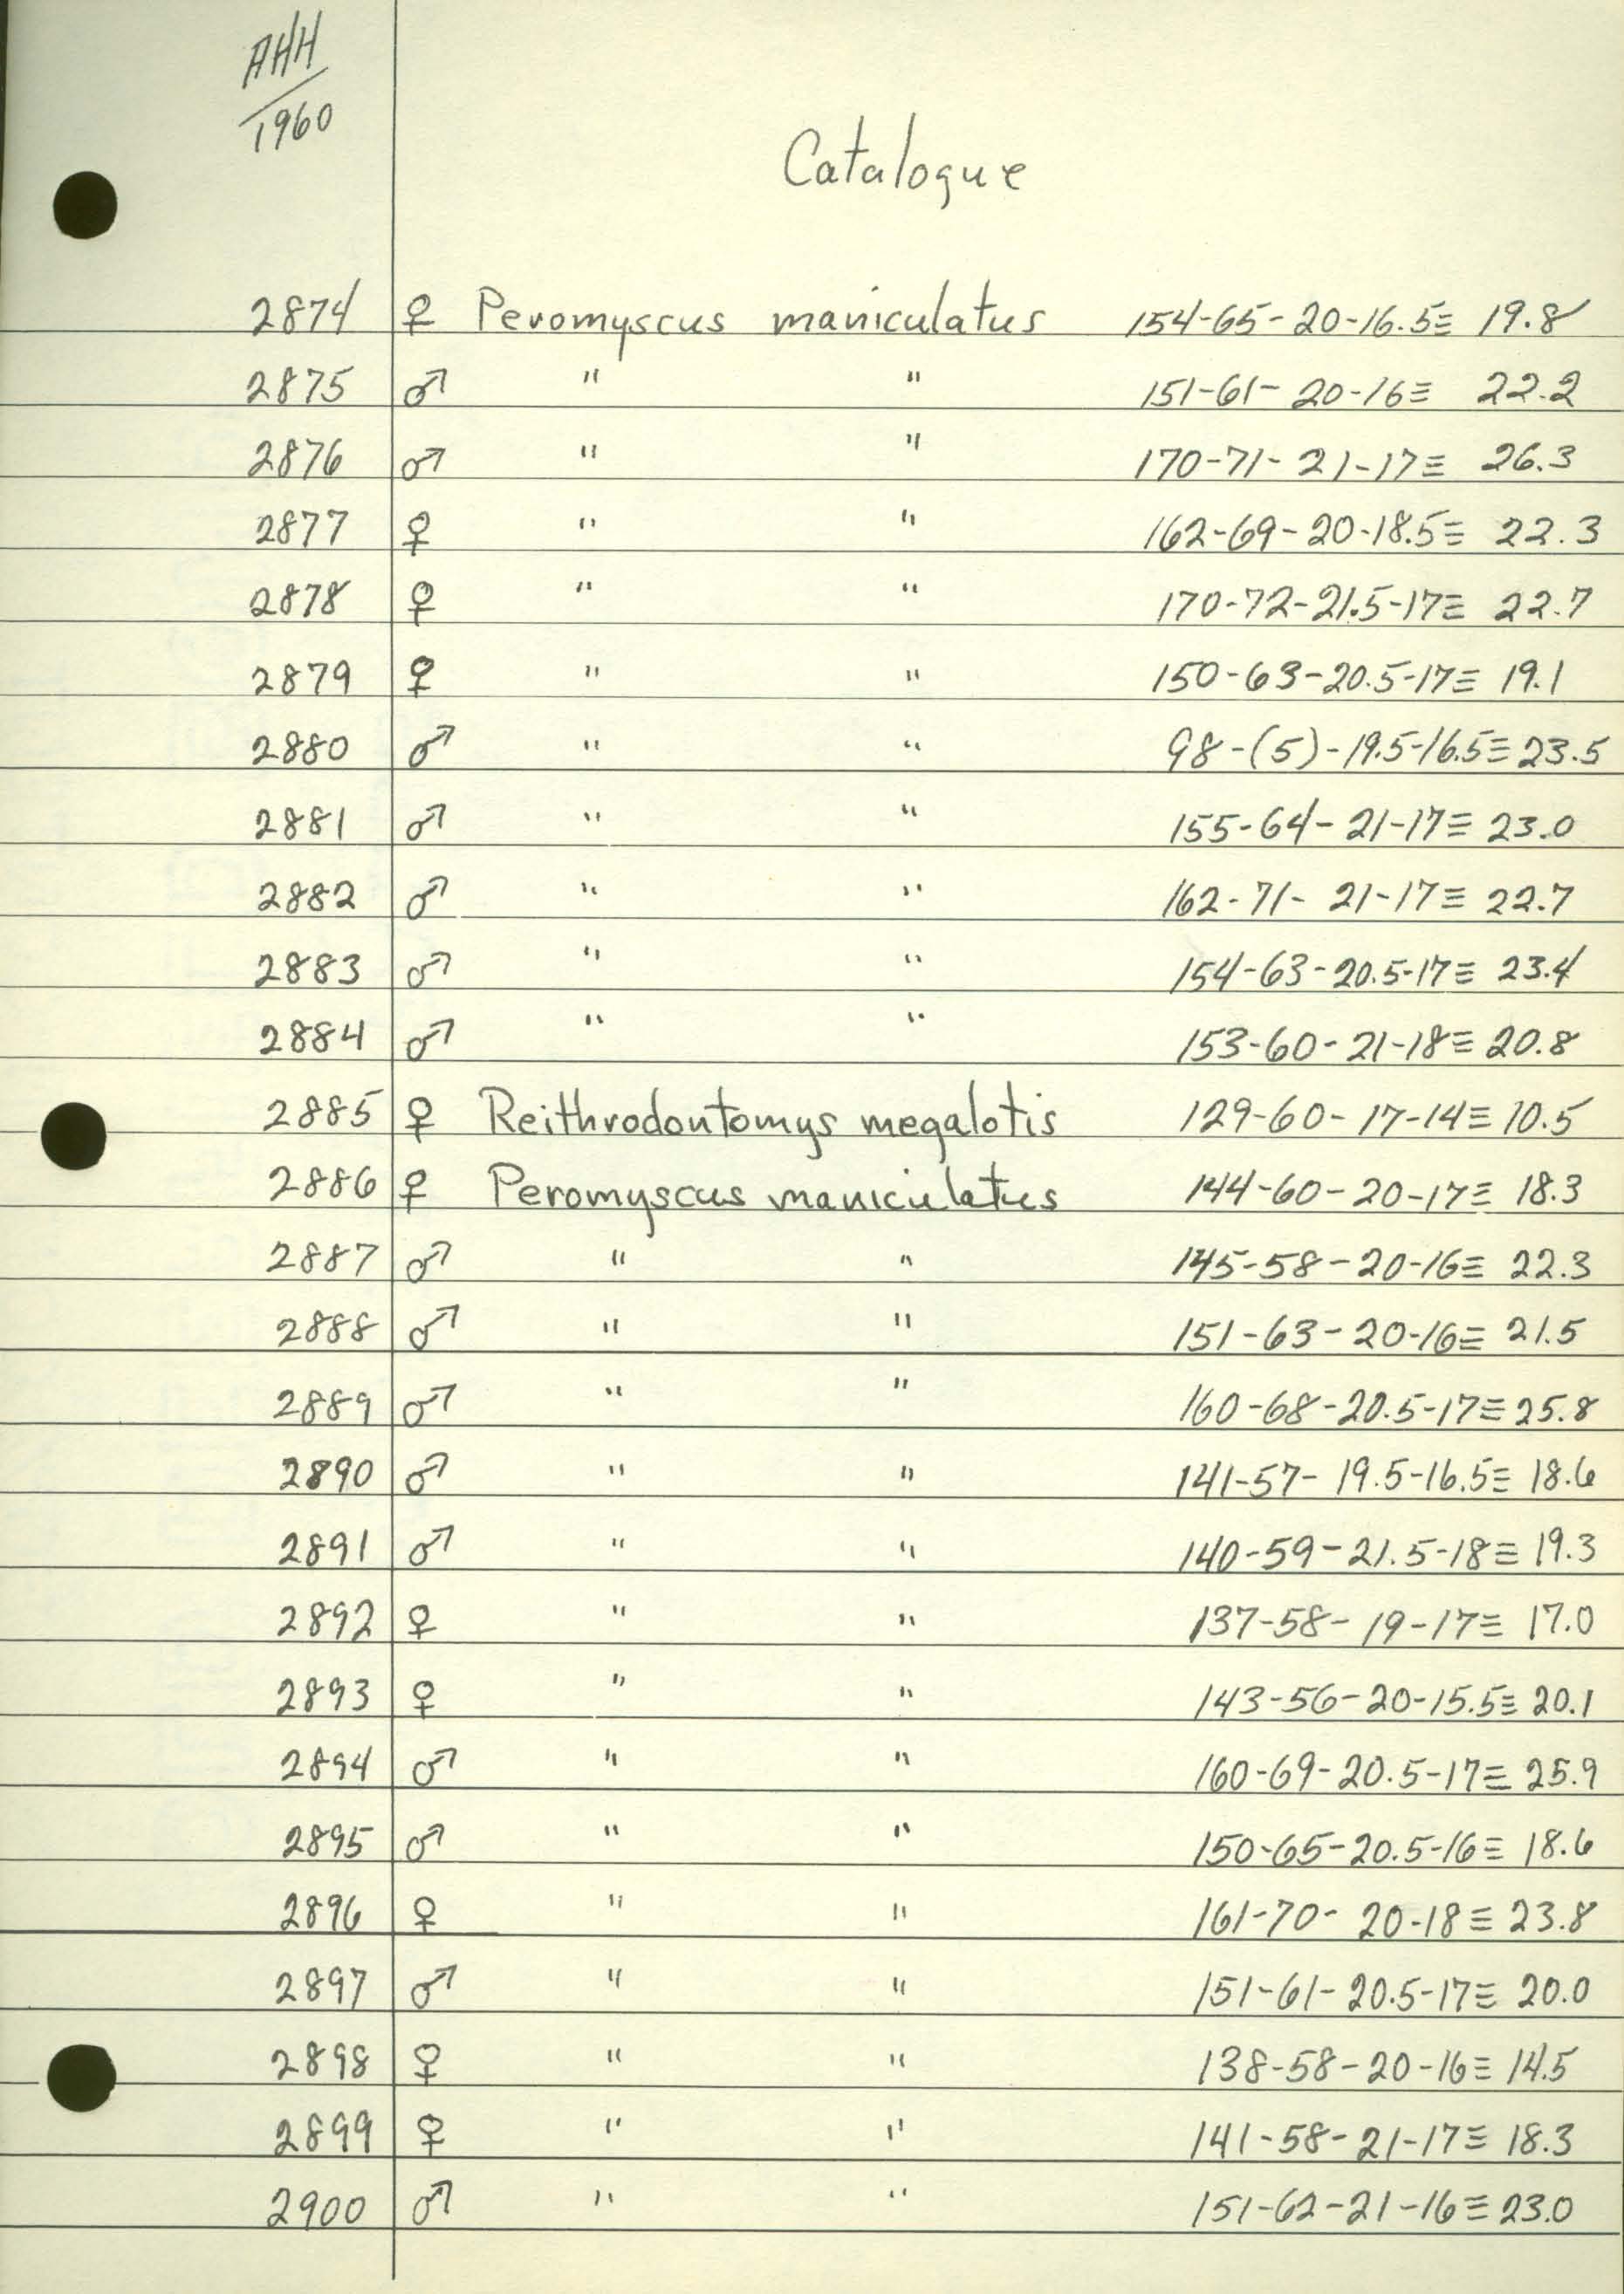 AHH
1960
Catalogue
2874 ♀ Peromyscus maniculatus 154-65-20-16.5≡ 19.8
2875 ♂ " " 151-61-20-16≡ 22.2
2876 ♂ " " 170-71-21-17≡ 26.3
2877 ♀ " " 162-69-20-18.5≡ 22.3
2878 ♀ " " 170-72-21.5-17≡ 22.7
2879 ♀ " " 150-63-20.5-17≡ 19.1
2880 ♂ " " 98-(5)-19.5-16.5≡ 23.5
2881 ♂ " " 155-64-21-17≡ 23.0
2882 ♂ " " 162-71-21-17≡ 22.7
2883 ♂ " " 154-63-20.5-17≡ 23.4
2884 ♂ " " 153-60-21-18≡ 20.8
2885 ♀ Reithrodontomys megalotis 129-60-17-14≡ 10.5
2886 ♀ Peromyscus maniculatus 144-60-20-17≡ 18.3
2887 ♂ " " 145-58-20-16≡ 22.3
2888 ♂ " " 151-63-20-16≡ 21.5
2889 ♂ " " 160-68-20.5-17≡ 25.8
2890 ♂ " " 141-57-19.5-16.5≡ 18.6
2891 ♂ " " 140-59-21.5-18≡ 19.3
2892 ♀ " " 137-58-19-17≡ 17.0
2893 ♀ " " 143-56-20-15.5≡ 20.1
2894 ♂ " " 160-69-20.5-17≡ 25.9
2895 ♂ " " 150-65-20.5-16≡ 18.6
2896 ♀ " " 161-70-20-18≡ 23.8
2897 ♂ " " 151-61-20.5-17≡ 20.0
2898 ♀ " " 138-58-20-16≡ 14.5
2899 ♀ " " 141-58-21-17≡ 18.3
2900 ♂ " " 151-62-21-16≡ 23.0